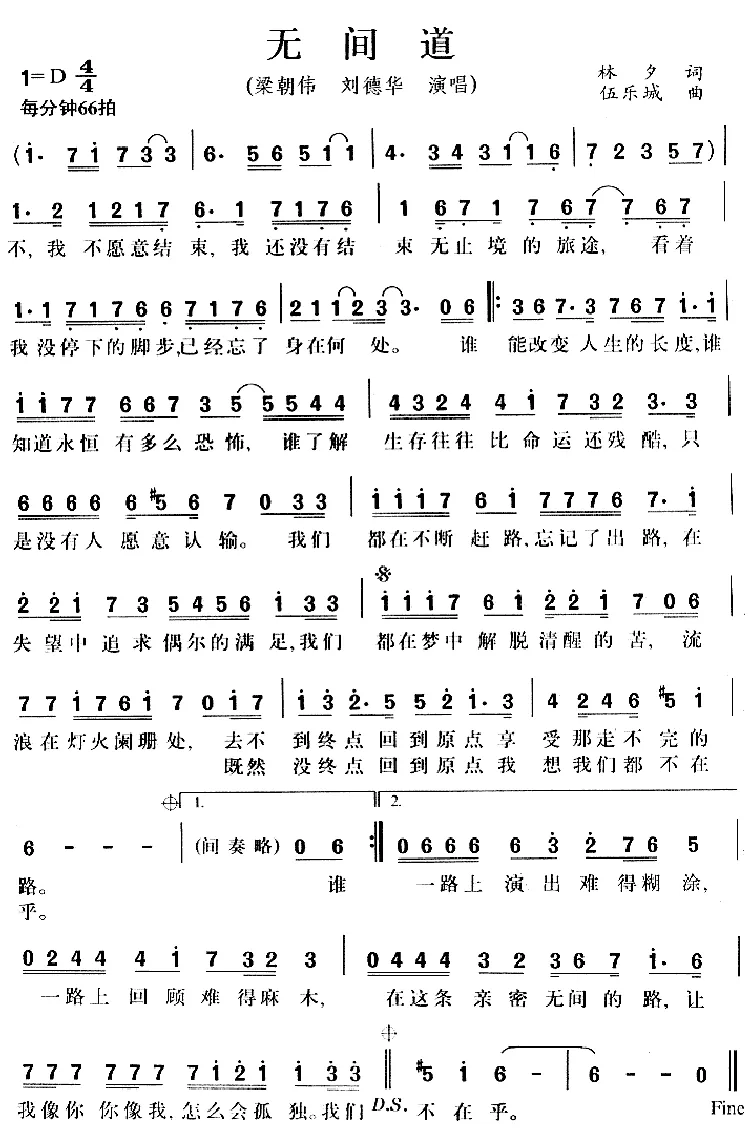 无间道
1=D 4/4
(梁朝伟 刘德华 演唱)
林夕 词
伍乐城 曲
每分钟66拍
(i· 7i 733 | 6· 56 5i11 | 4· 34 3116 | 72357)
1·2 1217 6·1 7176 | 1 671 767 767
不,我 不愿意结 束,我 还没有结 束 无止境的旅途, 看着
1·1717667176 | 2112333· 06 |: 367·3767i·i
我没停下的脚步,已经忘了 身在何处。 谁 能改变人生的长度,谁
ii77 667355544 | 4324 4i7323·3
知道永恒 有多么恐怖, 谁了解 生存往往 比命运还残酷,只
6666 6#567 033 | iii7 6i77767·i
是没有人 愿意认输。 我们 都在不断 赶路,忘记了出路,在
22i 7354561·33 | iii7 6i22i706
失望中 追求偶尔的满足,我们 都在梦中 解脱清醒的苦, 流
77i76i7 0i7 | i32·552i·3 | 4246#5i
浪在灯火阑珊处, 去不 到终点 回到原点享 受那走不完的
既然 没终点 回到原点我 想我们都不在
1. 2.
6 - - - (间奏略) 06 :| 0666 632765
路。 谁 一路上 演出难得糊涂,
乎。
0244 4i7323 | 0444 32367i·6
一路上 回顾难得麻木, 在这条 亲密无间的路,让
777 777 7i2i i33 || #5i6 - 6 - - 0 ||
我像你 你像我,怎么会孤独。我们 D.S. 不在乎。 Fine